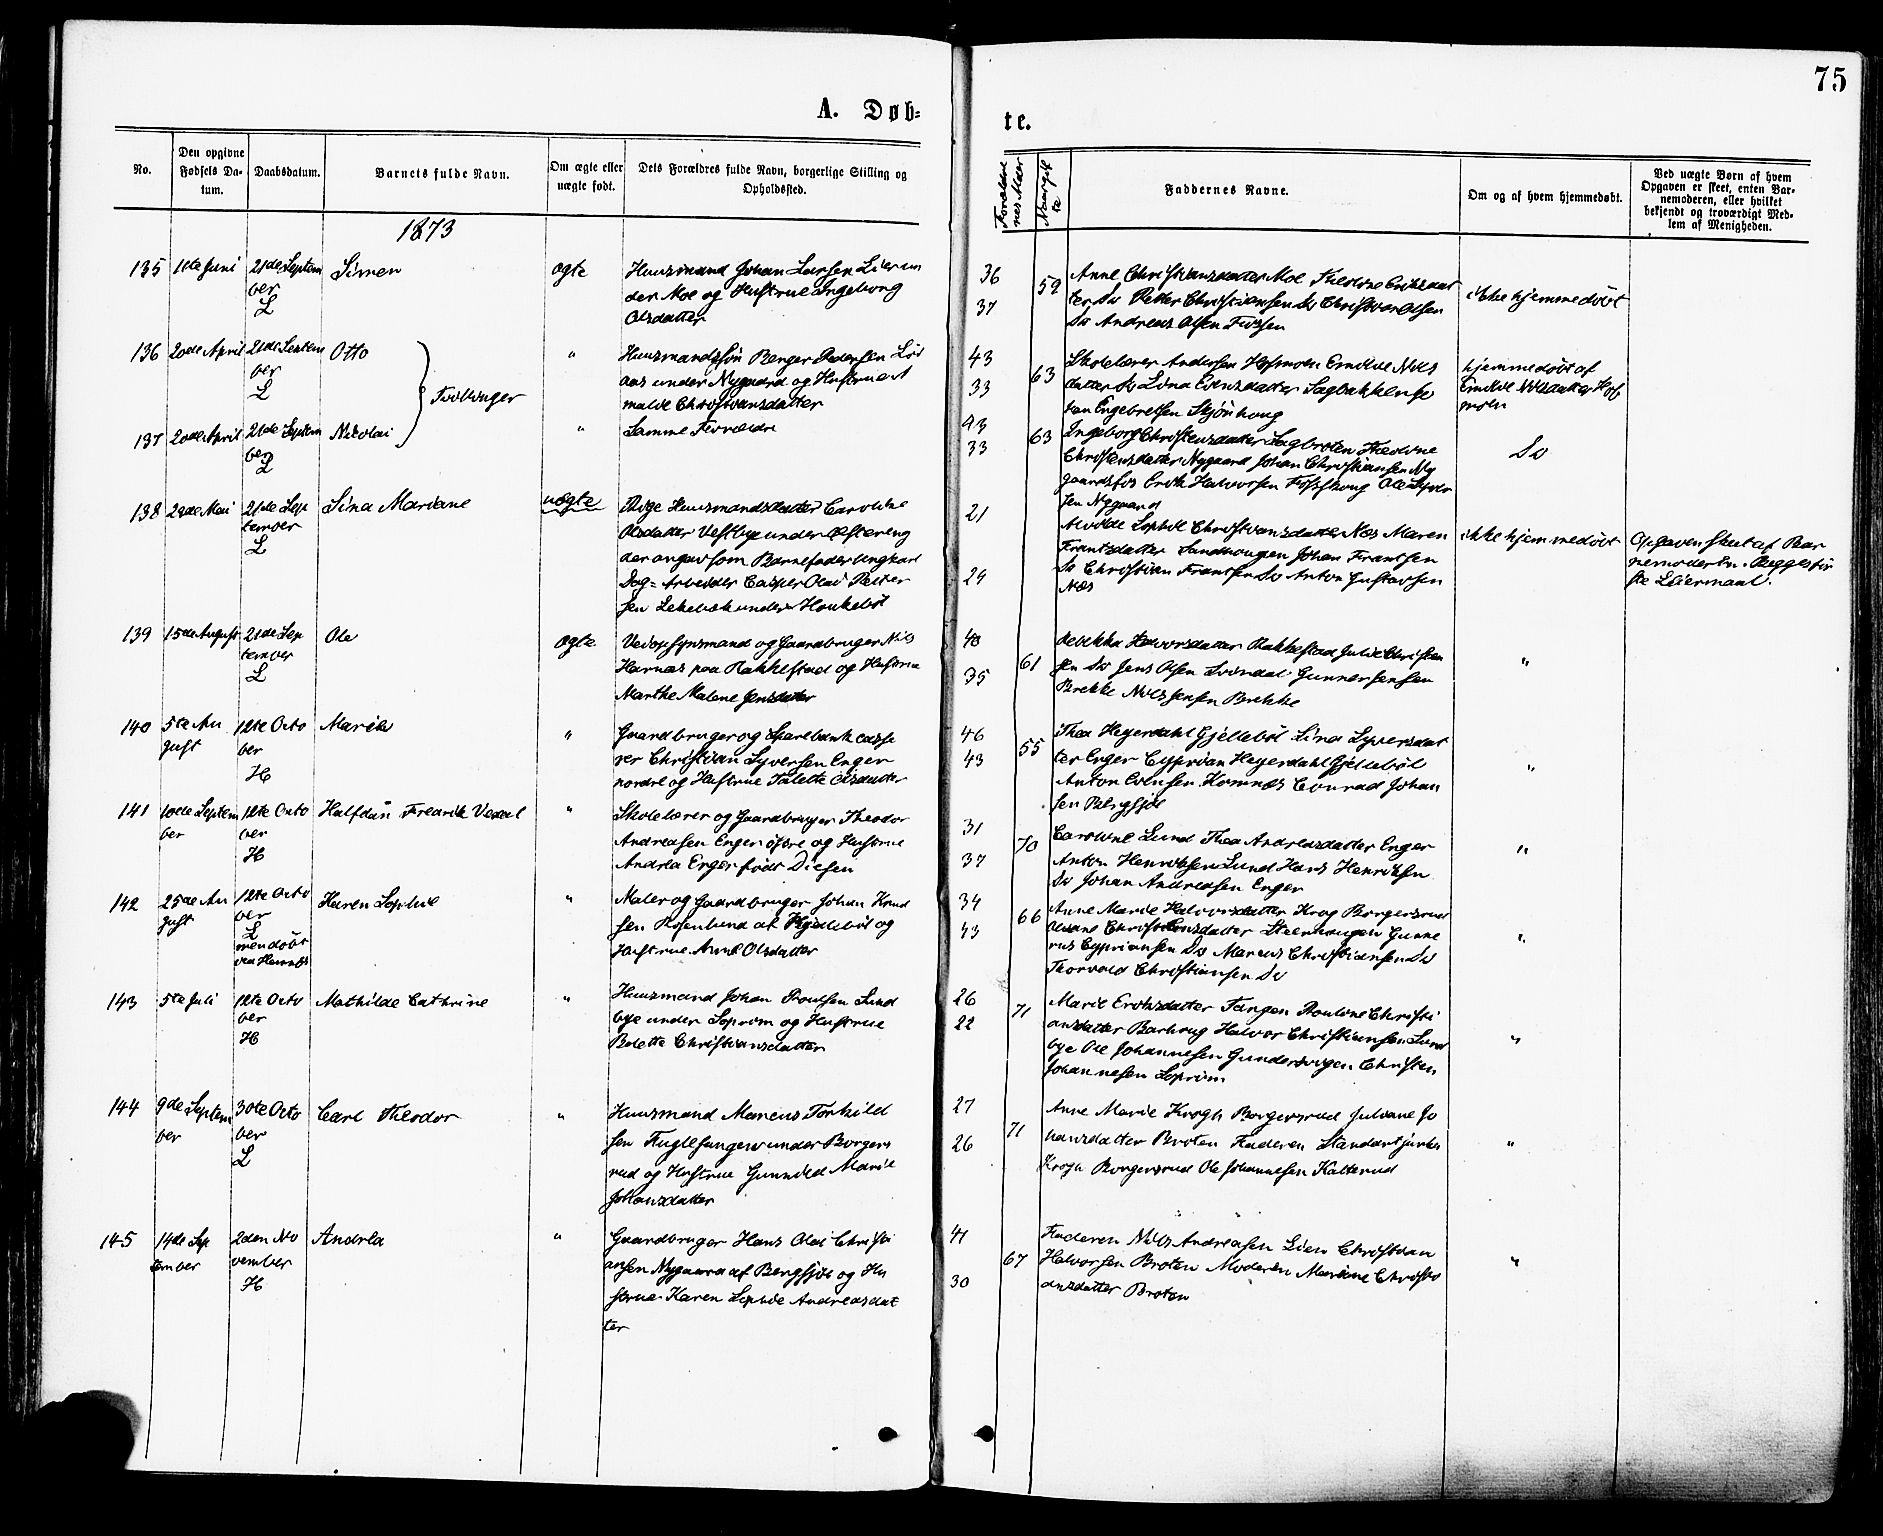 75
A. Døb-
te.
No.
Den opgivne Fødsels Datum.
Daabsdatum.
Barnets fulde Navn.
Om ægte eller uægte født.
Dets Forældres fulde Navn, borgerlige Stilling og Opholdssted.
Forældrenes Alder
Faddernes Navne.
Om og af hvem hjemmedøbt.
Ved uægte Børn af hvem Opgaven er skeet, enten Barnemoderen, eller hvilket bekjendt og troværdigt Medlem af Menigheden.
1873
135
11te Juni
21de Septem
ber
L
Simen
ægte
Huusmand Johan Larsen Lier un
der Moe og Hustrue Ingeborg
Olsdatter
36
37
59
Anne Christiansdatter Moe
ter Do Petter Christiansen Do Christian Olsen
Do Andreas Olsen Fossen
ikke hjemmedøbt
136
20de April
21de Septem
ber
L
Otto
Tvillinger
"
Huusmandssøn Berger Pedersen
aas under Nygaard og Hustrue A
malie Christiansdatter
43
33
63
Skolelærer Andersen Hofmoen Emilie Nils
datter Do Lina Evensdatter Sagbakken
han Engebretsen Skjønhoug
hjemmedøbt af
Emilie Nilsdatter Hof
moen
137
20de April
21de Septem
ber
L
Nikolai
"
Samme Forældre
43
33
63
Ingeborg Christensdatter Sagbroten
Christensdatter Nygaard Johan Christiansen Ny
gaardsfos Erik Halvorsen Ole Syver
sen Nygaard
Do
138
21de Sep
tember
L
Sina Mariane
uægte
Pige Huusmandsdatter Caroline
Olsdatter Vestbye under Østereng
der angav som Barnefader Ungkarl
Dag-Arbeider Casper Olai Petter
sen under
21
29
Alvilde Sophie Christiansdatter Næs Maren
Frantsdatter Sandhougen Johan Frantsen
Do Christian Frantsen Do Anton Gustavsen
Næs
ikke hjemmedøbt
Opgaven skeet af Bar
nemoderen. Begges før
ste Leiermaal.
139
15de August
21de Sep
tember
L
Ole
ægte
og Gaardbruger Nils
Harnæs paa Rakkestad og Hustrue
Marthe Malene Jensdatter
40
35
61
Rebekka Halvorsdatter Rakkestad Julie Christen
sen Do Jens Olsen Gunner Jensen
Brekke Nils Jensen Brekke
"
140
5te Au
gust
12te Octo
ber
H
Marie
"
Gaardbruger og Sparebankcasse
rer Christian Syversen Enger
nordre og Hustrue Olsdatter
46
43
55
Thea Heyerdahl Gjellebøl Lina Syversdat
ter Enger Cyprian Heyerdahl Gjellebøl
Anton Evensen Komnæs Conrad Johan
sen Bergsjø
"
141
10de Septem
ber
12te Octo
ber
H
Halfdan Fredrik
"
Skolelærer og Gaardbruger Theodor
Andreasen Enger øfre og Hustrue
Andrea Enger født Diesen
31
37
70
Caroline Lund Thea Andreasdatter Enger
Anton Henriksen Lund Hans Henriksen
Do Johan Andreasen Enger
"
142
25de Au
gust
12te Octo
ber
L
men døbt
via Hemnæs
Karen Sophie
"
Maler og Gaardbruger Johan Knud
sen Rosenlund af Gjellebøl og
Hustrue Anne Olsdatter
34
43
66
Anne Marie Halvorsdatter Krog Borgersrud
Christiansdatter Steenhougen Gunne
rus Cypriansen Do Marcus Christiansen Do
Thorvald Christiansen Do
"
143
5te Juli
12te Octo
ber
H
Mathilde Cathrine
"
Huusmand Johan Poulsen Lund
bye under Soprim og Hustrue
Bolette Christiansdatter
26
22
71
Marie Eriksdatter Tangen Pauline Christi
ansdatter Halvor Christiansen Lund
bye Ole Johannesen Gundersvigen Christen
Johannesen Soprim
"
144
9de Septem
ber
30te Octo
ber
L
Carl Theodor
"
Huusmand Marcus Torkild
sen Fuglesangen under Borgers
rud og Hustrue Gunnild Marie
Johansdatter
27
26
71
Anne Marie Krogh Borgersrud Juliane Jo
hansdatter Broten Faderen
Krogh Borgersrud Ole Johannesen Kalterud
"
145
14de Sep
tember
2den No
vember
H
Andrea
"
Gaardbruger Hans Olai Christi
ansen Nygaard af Bergsjø og Hu
strue Karen Sophie Andreasdat
ter
41
30
67
Faderen Nils Andreasen Lien Christian
Halvorsen Broten Moderen Mariane Christi
ansdatter Broten
"